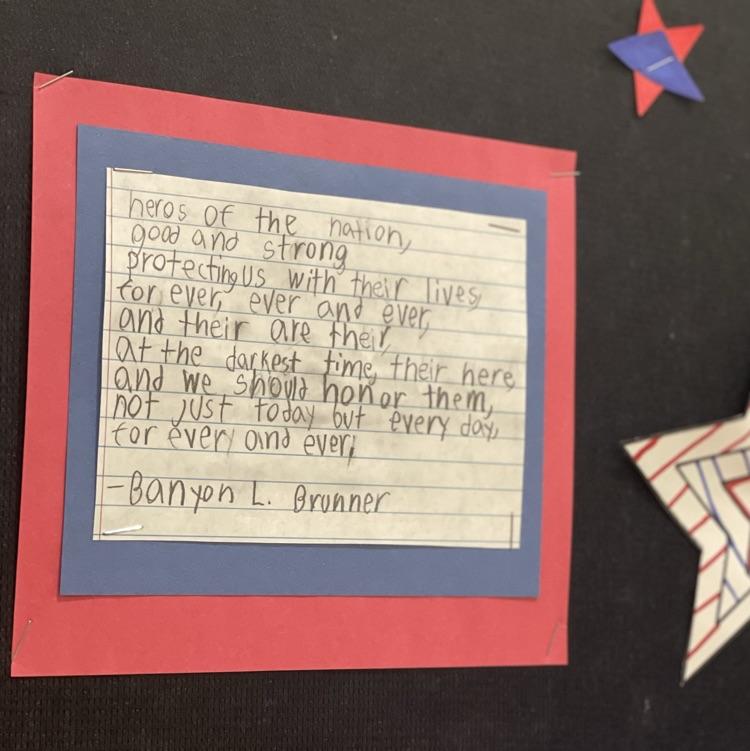 heros of the nation,
good and strong
protecting us with their lives,
for ever, ever and ever,
and their are their,
at the darkest time, their here,
and we should honor them,
not just today but every day,
for every and ever,
-Banyon L. Brunner